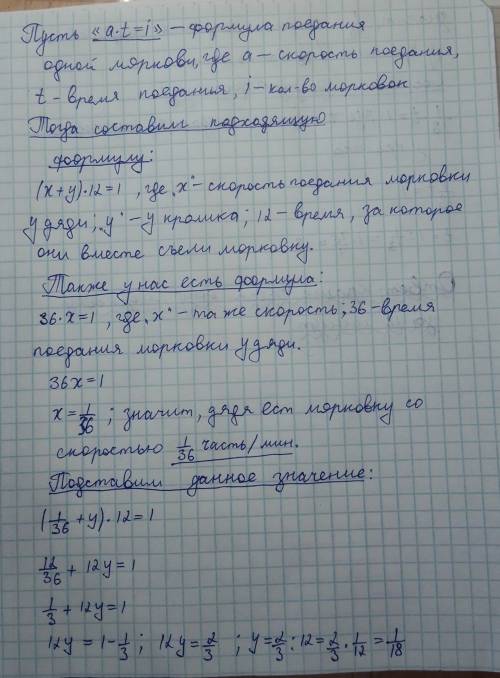 Пусть «a·t=i» – формула поедания
одной моркови, где a – скорость поедания,
t – время поедания, i – кол-во морковок
Тогда составим подходящую
формулу:
(x+y)·12=1, где „x“ – скорость поедания морковки
у дяди; „y“ – у кролика; 12 – время, за которое
они вместе съели морковку.
Также у нас есть формула:
36·x=1, где „x“ – та же скорость; 36 – время
поедания морковки у дяди.
36x=1
x=1/36; значит, дядя ест морковку со
скоростью 1/36 часть/мин.
Подставим данное значение:
(1/36+y)·12=1
12/36+12y=1
1/3+12y=1
12y=1-1/3; 12y=2/3; y=2/3:12=2/3·1/12=1/18